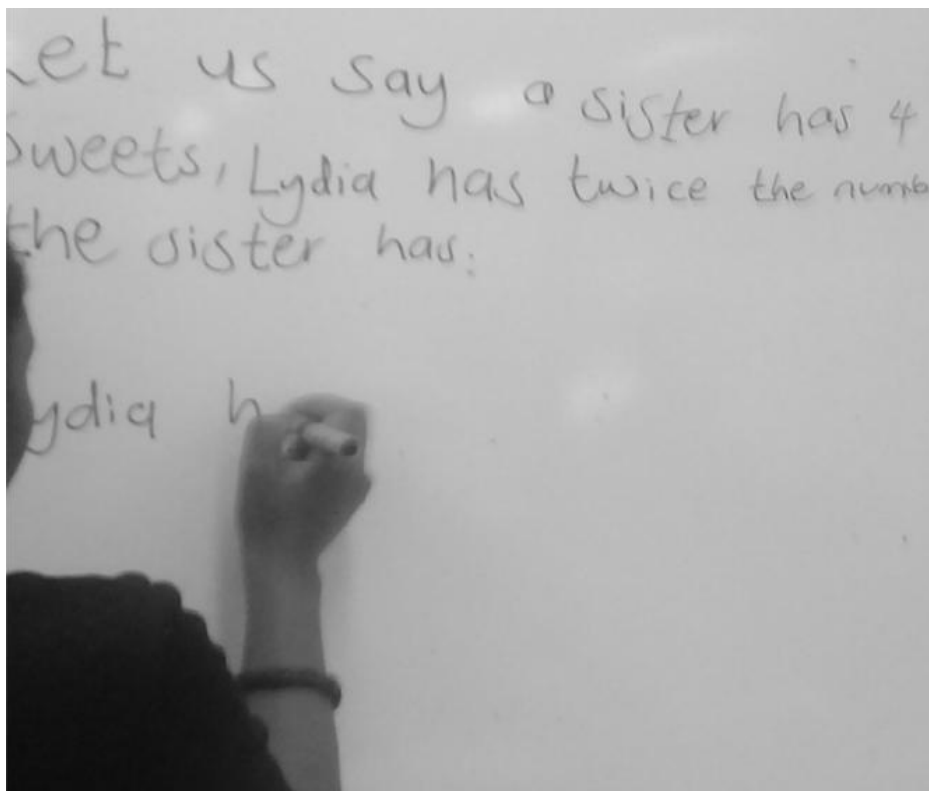 Let us say a sister has 4
sweets, Lydia has twice the numb
the sister has:
Lydia h